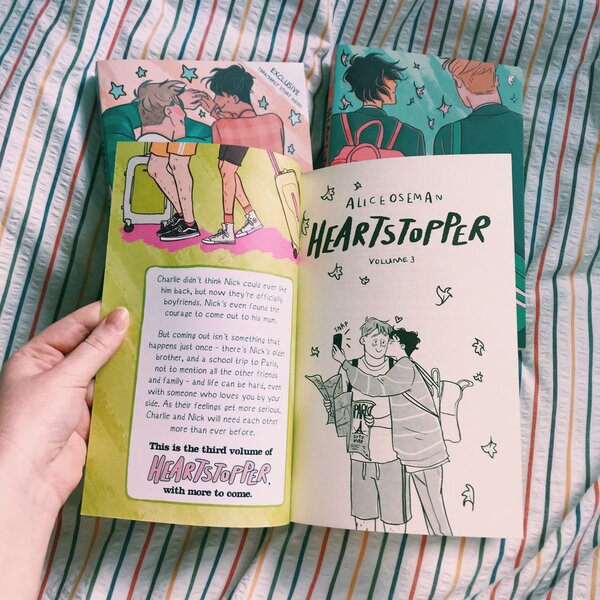 EXCLUSIVE
ALICE OSEMAN
HEARTSTOPPER
VOLUME 3
Charlie didn't think Nick could ever like
him back, but now they're officially
boyfriends. Nick's even found the
courage to come out to his mum.
But coming out isn't something that
happens just once - there's Nick's older
brother, and a school trip to Paris,
not to mention all the other friends
and family - and life can be hard, even
with someone who loves you by your
side. As their feelings get more serious,
Charlie and Nick will need each other
more than ever before.
This is the third volume of
HEARTSTOPPER,
with more to come.
SNAP
PARIS
CITY
MAP